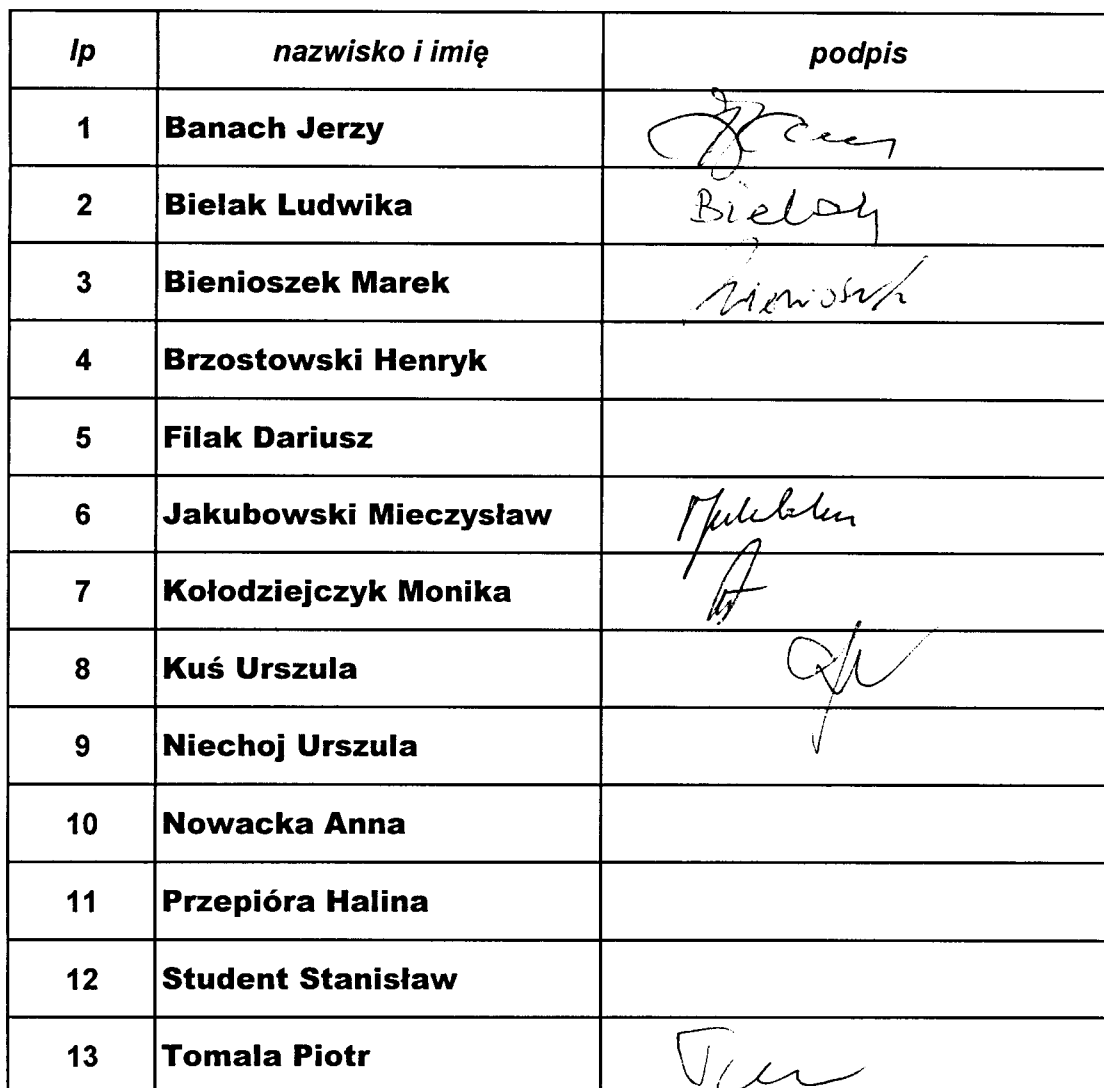 lp nazwisko i imię podpis
1 Banach Jerzy
2 Bielak Ludwika Bielak
3 Bienioszek Marek
4 Brzostowski Henryk
5 Filak Dariusz
6 Jakubowski Mieczysław
7 Kołodziejczyk Monika
8 Kuś Urszula
9 Niechoj Urszula
10 Nowacka Anna
11 Przepióra Halina
12 Student Stanisław
13 Tomala Piotr